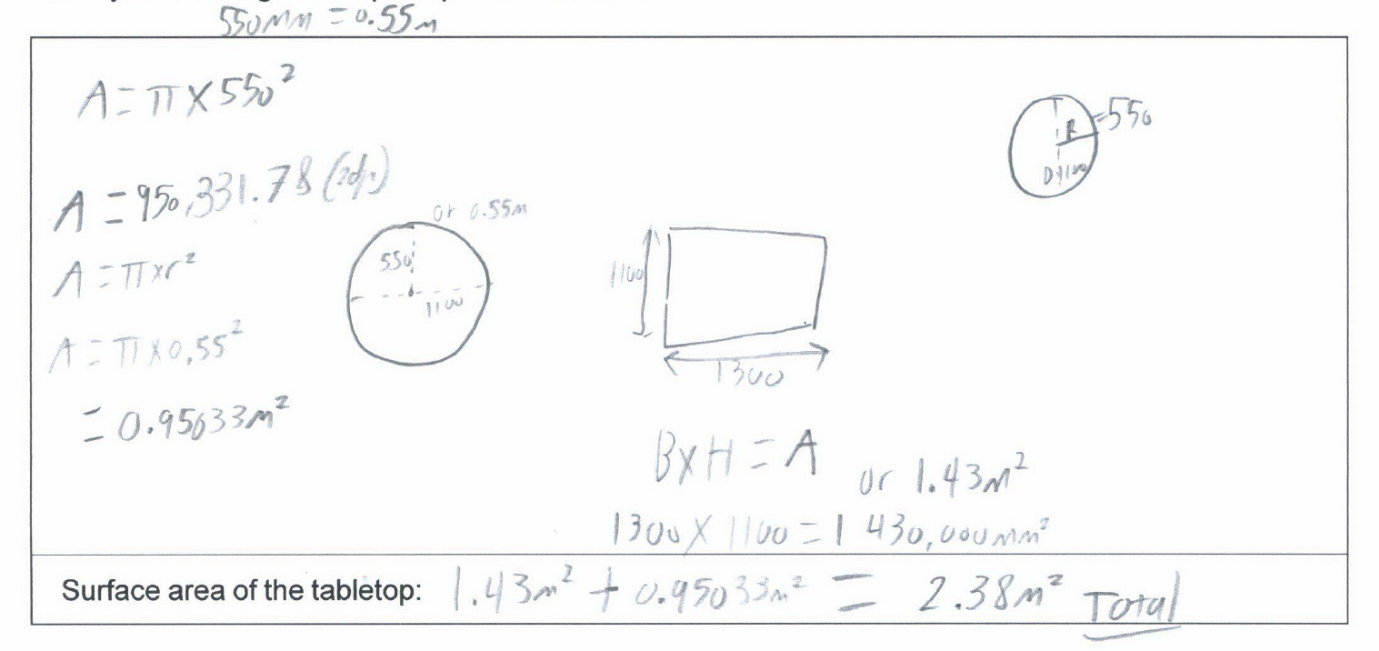 550mm = 0.55m
A = π × 550²
A = 950,331.78 (2dp.)
A = π × r²
A = π × 0.55²
= 0.95033m²
or 0.55m
550
1100
1100
1300
B×H = A
or 1.43m²
1300 × 1100 = 1 430,000mm²
R = 550
D 1100
Surface area of the tabletop: 1.43m² + 0.95033m² = 2.38m² Total